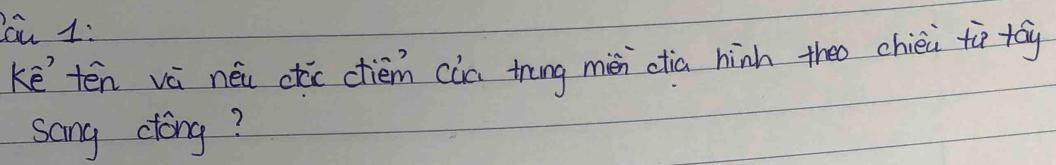 Câu 1:
Kể tên và nêu đặc điểm của trung miền địa hình theo chiều từ tây
sang đông?